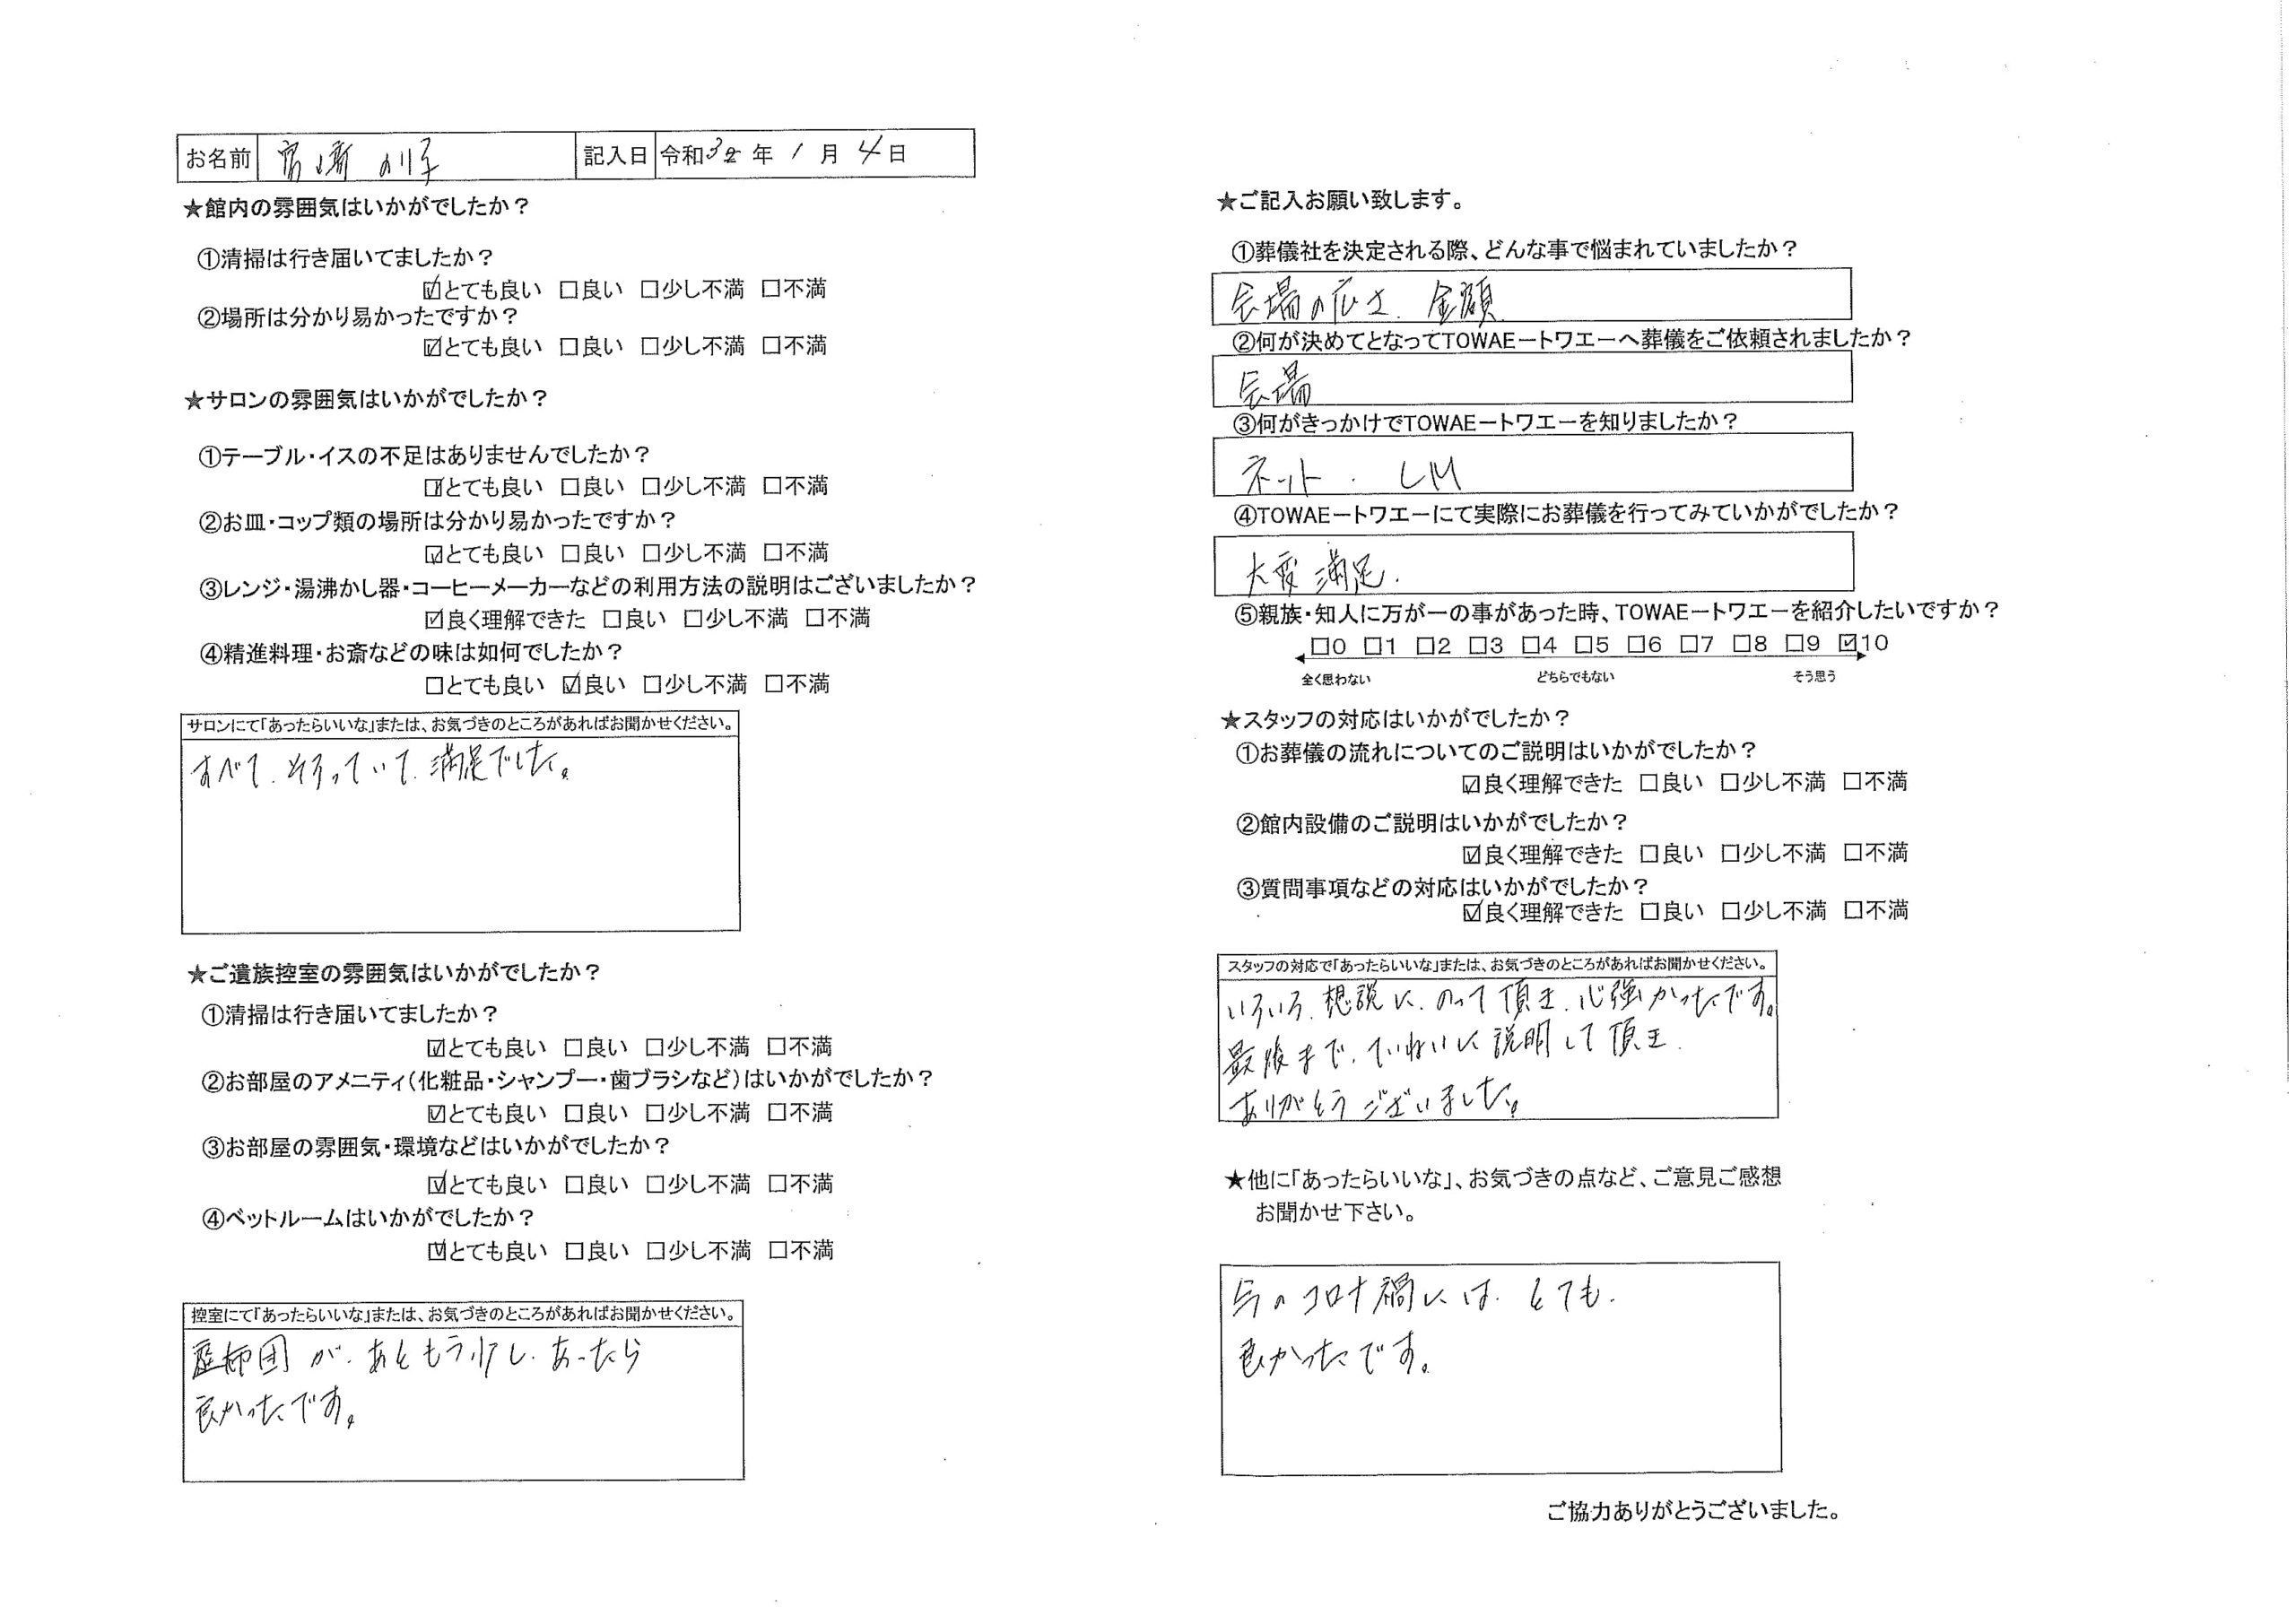 お名前 宮﨑 記入日 令和3年 1月 4日
★館内の雰囲気はいかがでしたか？
①清掃は行き届いてましたか？
☑とても良い □良い □少し不満 □不満
②場所は分かり易かったですか？
☑とても良い □良い □少し不満 □不満
★サロンの雰囲気はいかがでしたか？
①テーブル・イスの不足はありませんでしたか？
☑とても良い □良い □少し不満 □不満
②お皿・コップ類の場所は分かり易かったですか？
☑とても良い □良い □少し不満 □不満
③レンジ・湯沸かし器・コーヒーメーカーなどの利用方法の説明はございましたか？
☑良く理解できた □良い □少し不満 □不満
④精進料理・お斎などの味は如何でしたか？
□とても良い ☑良い □少し不満 □不満
サロンにて「あったらいいな」または、お気づきのところがあればお聞かせください。
すべて、そろっていて、満足でした。
★ご遺族控室の雰囲気はいかがでしたか？
①清掃は行き届いてましたか？
☑とても良い □良い □少し不満 □不満
②お部屋のアメニティ（化粧品・シャンプー・歯ブラシなど）はいかがでしたか？
☑とても良い □良い □少し不満 □不満
③お部屋の雰囲気・環境などはいかがでしたか？
☑とても良い □良い □少し不満 □不満
④ベットルームはいかがでしたか？
☑とても良い □良い □少し不満 □不満
控室にて「あったらいいな」または、お気づきのところがあればお聞かせください。
が、あともう少し、あったら
良かったです。
★ご記入お願い致します。
①葬儀社を決定される際、どんな事で悩まれていましたか？
会場の広さ、金額
②何が決めてとなってTOWAEートワエーへ葬儀をご依頼されましたか？
会場
③何がきっかけでTOWAEートワエーを知りましたか？
ネット .
④TOWAEートワエーにて実際にお葬儀を行ってみていかがでしたか？
大変満足.
⑤親族・知人に万が一の事があった時、TOWAEートワエーを紹介したいですか？
□0 □1 □2 □3 □4 □5 □6 □7 □8 □9 ☑10
全く思わない どちらでもない そう思う
★スタッフの対応はいかがでしたか？
①お葬儀の流れについてのご説明はいかがでしたか？
☑良く理解できた □良い □少し不満 □不満
②館内設備のご説明はいかがでしたか？
☑良く理解できた □良い □少し不満 □不満
③質問事項などの対応はいかがでしたか？
☑良く理解できた □良い □少し不満 □不満
スタッフの対応で「あったらいいな」または、お気づきのところがあればお聞かせください。
いろいろ、想談に、のって頂き、心強かったです。
最後まで、ていねいに説明して頂き、
ありがとうございました。
★他に「あったらいいな」、お気づきの点など、ご意見ご感想
お聞かせ下さい。
今のコロナ禍には、とても、
良かったです。
ご協力ありがとうございました。